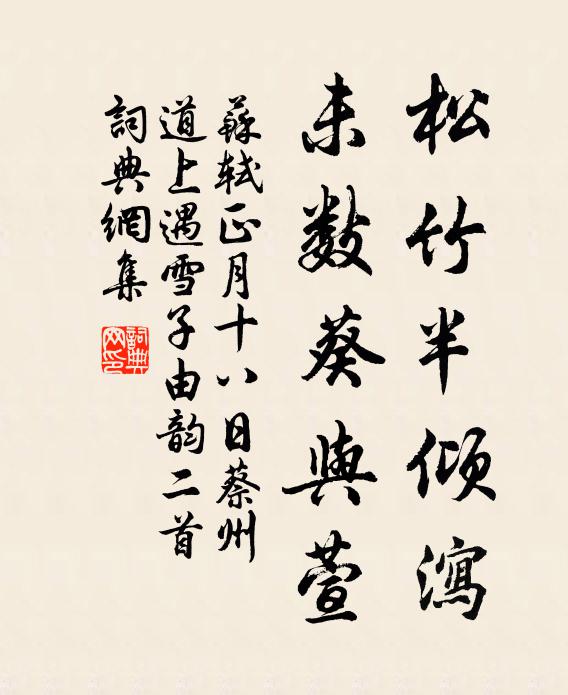 松竹半傾瀉
未数葵與萱
蘇軾正月十八日蔡州
道上遇雪子由韵二首
詞典網集
詞典網印